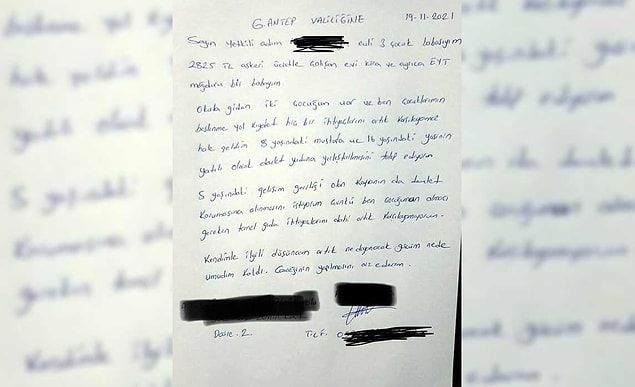 G.ANTEP VALİLİĞİNE 19-11-2021
Sayın Yetkili adım evli 3 çocuk babasıyım
2825 TL asgari ücretle çalışan evi kira ve ayrıca EYT
mağduru bir babayım.
Okula giden iki çocuğum var ve ben çocuklarımın
beslenme yol kıyafet hiç bir ihtiyaçlarını artık karşılayamaz
hale geldim 8 yaşındaki mustafa ve 16 yaşındaki yasinin
yatılı olarak devlet yurduna yerleştirilmesini talep ediyorum
5 yaşındaki gelişim geriliği olan Kayanın da devlet
korumasına alınmasını istiyorum çünkü ben çocuğumun alması
gereken temel gıda ihtiyaçlarını dahi artık karşılayamıyorum.
Kendimle ilgili düşüncem artık ne dayanacak gücüm nede
umudum kaldı. Gereğinin yapılmasını arz ederim.
Daire. 2. TLF. 0